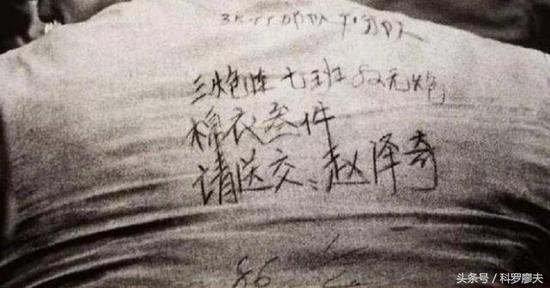 三炮连 七班 82无炮
棉衣叁件
请送交：赵泽奇
86
头条号／科罗廖夫